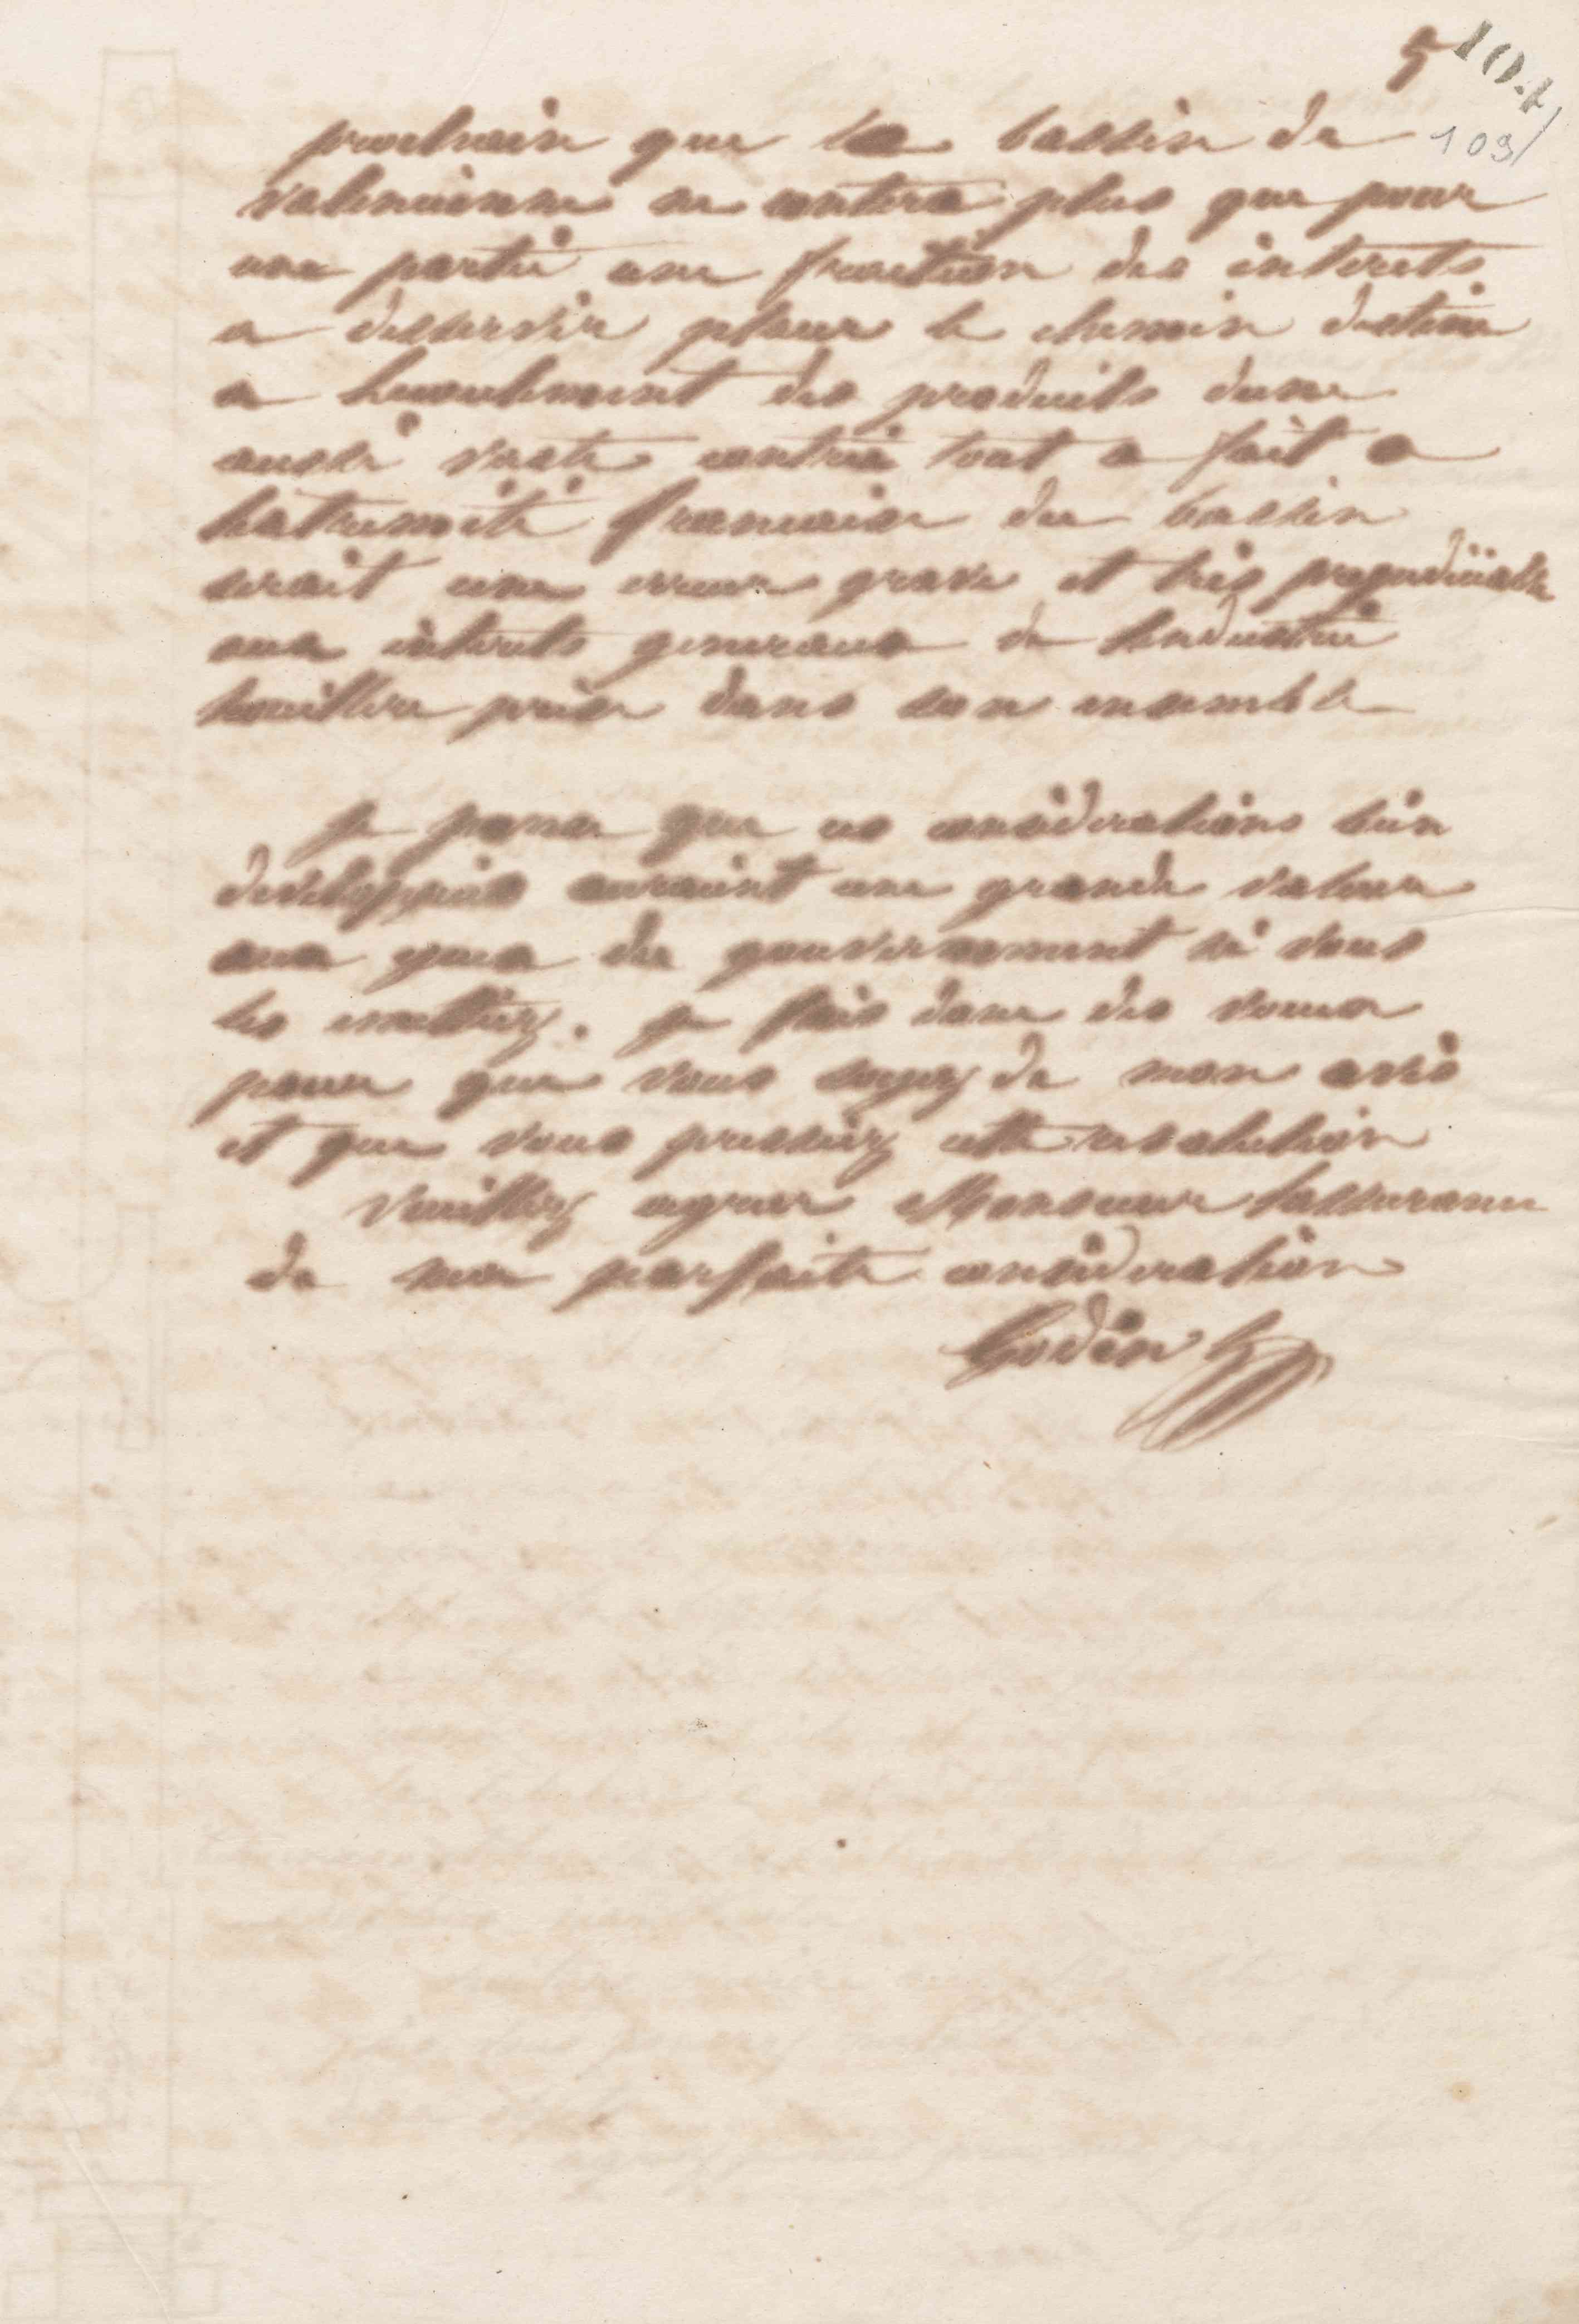 5
104
109
prochain que le bassin de
valencienne ne contera plus que pour
une partie une fraction des interets
a desservir placer le chemin destiné
a lecoulement des produits dune
aussi vaste contrée tout a fait a
lextremité francaise du bassin
serait une erreur grave et très prejudiciable
aux interets generaux de lindustrie
houillere prise dans son ensemble
je pense que ces considerations bien
developpées auraient une grande valeur
aux yeux du gouvernement si vous
les emettiez. je fais donc des voeux
pour que vous soyez de mon avis
et que vous pressiez cette resolution
Veuillez agreer Monsieur lassurance
de ma parfaite consideration
Godin